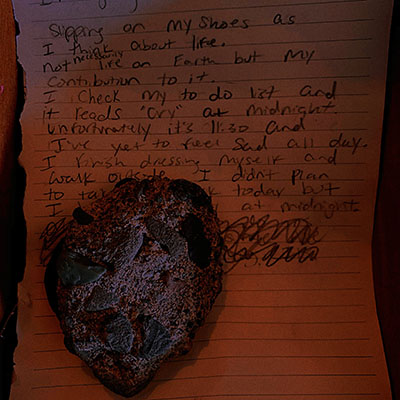 Slipping on my shoes as
I think about life.
not necessarily life on Earth but my
contribution to it.
I check my to do list and
it reads "cry" at midnight.
Unfortunately it's 11:30 and
I've yet to feel sad all day.
I finish dressing myself and
walk outside. I didn't plan
to today but
I at midnight.